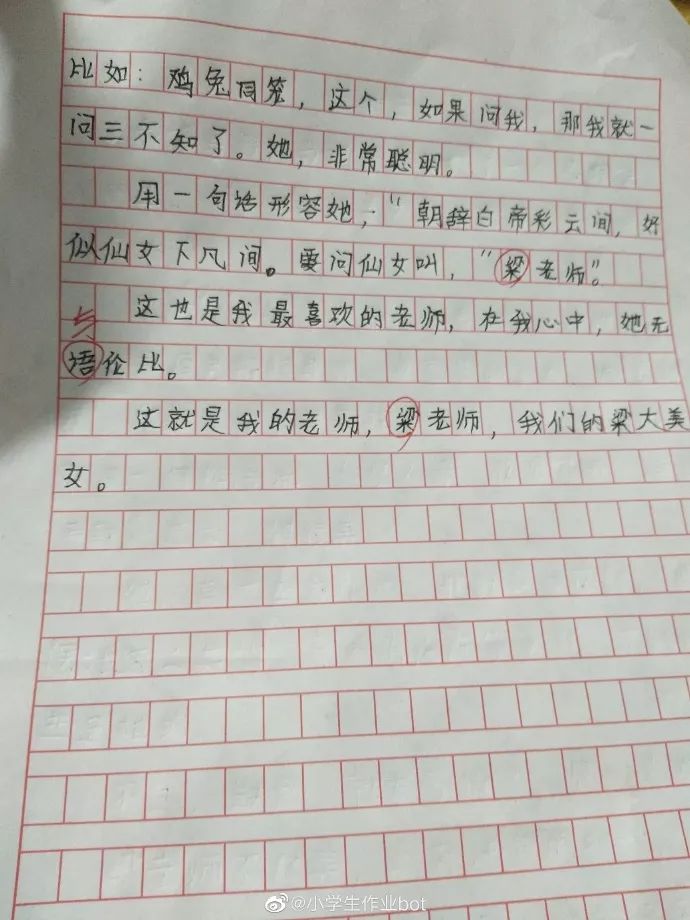 比如：鸡兔同笼，这个，如果问我，那我就一
问三不知了。她，非常聪明。
用一句话形容她；“朝辞白帝彩云间，好
似仙女下凡间。要问仙女叫，“梁老师”。
这也是我最喜欢的老师，在我心中，她无
语伦比。
这就是我的老师，梁老师，我们的梁大美
女。
@小学生作业bot